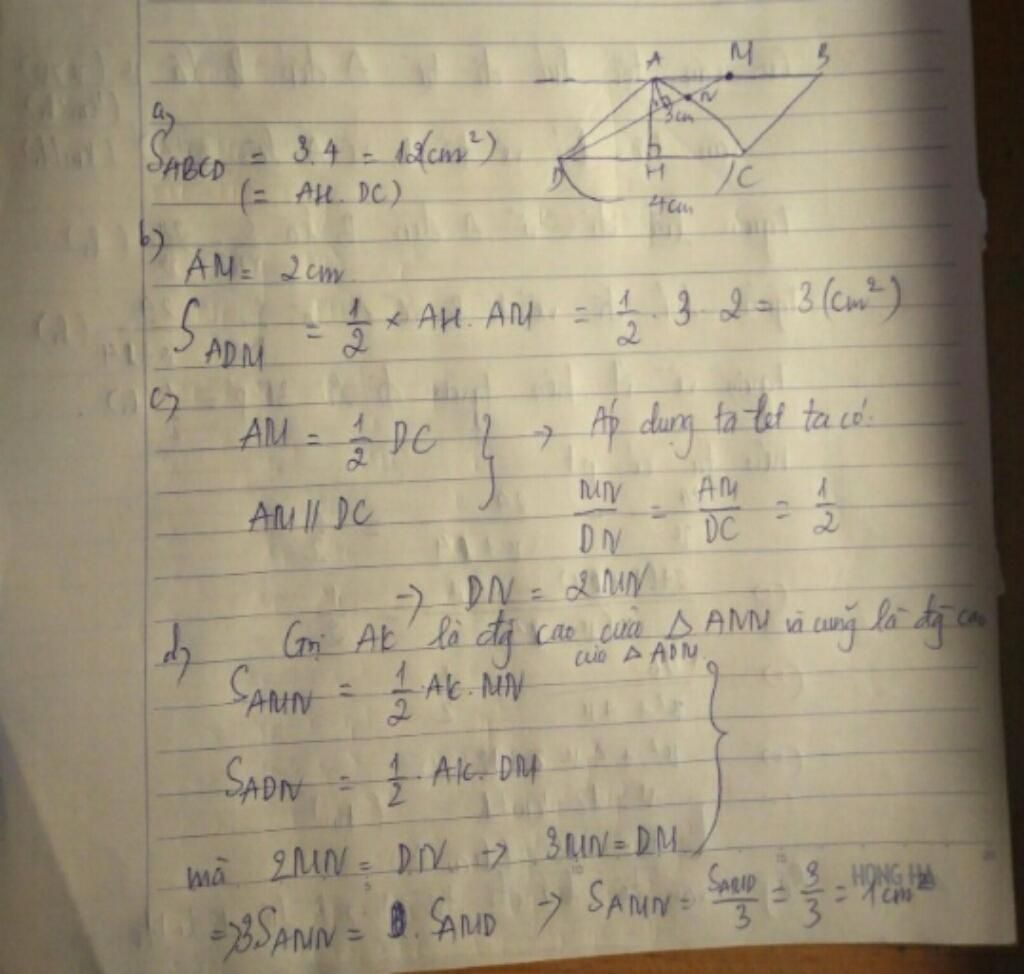 A M B
N
3cm
D H C
4cm
a)
S_ABCD = 3.4 = 12(cm²)
(= AH. DC)
b)
AM = 2cm
S_ADM = 1/2 × AH. AM = 1/2 . 3 . 2 = 3 (cm²)
c)
AM = 1/2 DC } → Áp dụng ta let ta có:
AM // DC
MN/DN = AM/DC = 1/2
→ DN = 2MN
d) Gọi AK là đg cao của △ AMN và cũng là đg cao
của △ ADN
S_AMN = 1/2 . AK. MN
S_ADN = 1/2 . AK. DM
mà 2MN = DN → 3MN = DM
HONG HA
=> 3S_AMN = . S_AMD → S_AMN = S_AMD/3 = 3/3 = 1cm²